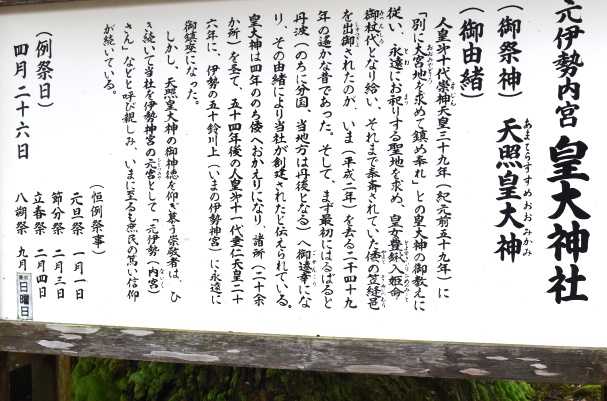 元伊勢内宮 皇大神社
(御祭神) 天照皇大神
あまてらすすめおおみかみ
(御由緒)
人皇第十代崇神天皇三十九年(紀元前五十九年)に
「別に大宮地を求めて鎮め奉れ」との皇大神の御教えに
従い、永遠にお祀りする聖地を求め、皇女豊鍬入姫命
御杖代となり給い、それまで奉斎されていた倭の笠縫邑
を出御されたのが、いま(平成二年)を去る二千四十九
年の遥かな昔であった。そして、まず最初にはるばると
丹波(のちに分国、当地方は丹後となる)へ御遠幸にな
り、その由緒により当社が創建されたと伝えられている。
皇大神は四年ののち倭へおかえりになり、諸所(二十余
か所)を至て、五十四年後の人皇第十一代垂仁天皇二十
六年に、伊勢の五十鈴川上(いまの伊勢神宮)に永遠に
御鎮座になった。
しかし、天照皇大神の御神徳を仰ぎ慕う崇敬者は、ひ
き続いて当社を伊勢神宮の元宮として、「元伊勢(内宮)
さん」などと呼び親しみ、いまに至るも庶民の篤い信仰
が続いている。
(恒例祭事)
元旦祭 一月一日
節分祭 二月三日
立春祭 二月四日
八朔祭 九月 日曜日
(例祭日)
四月二十六日